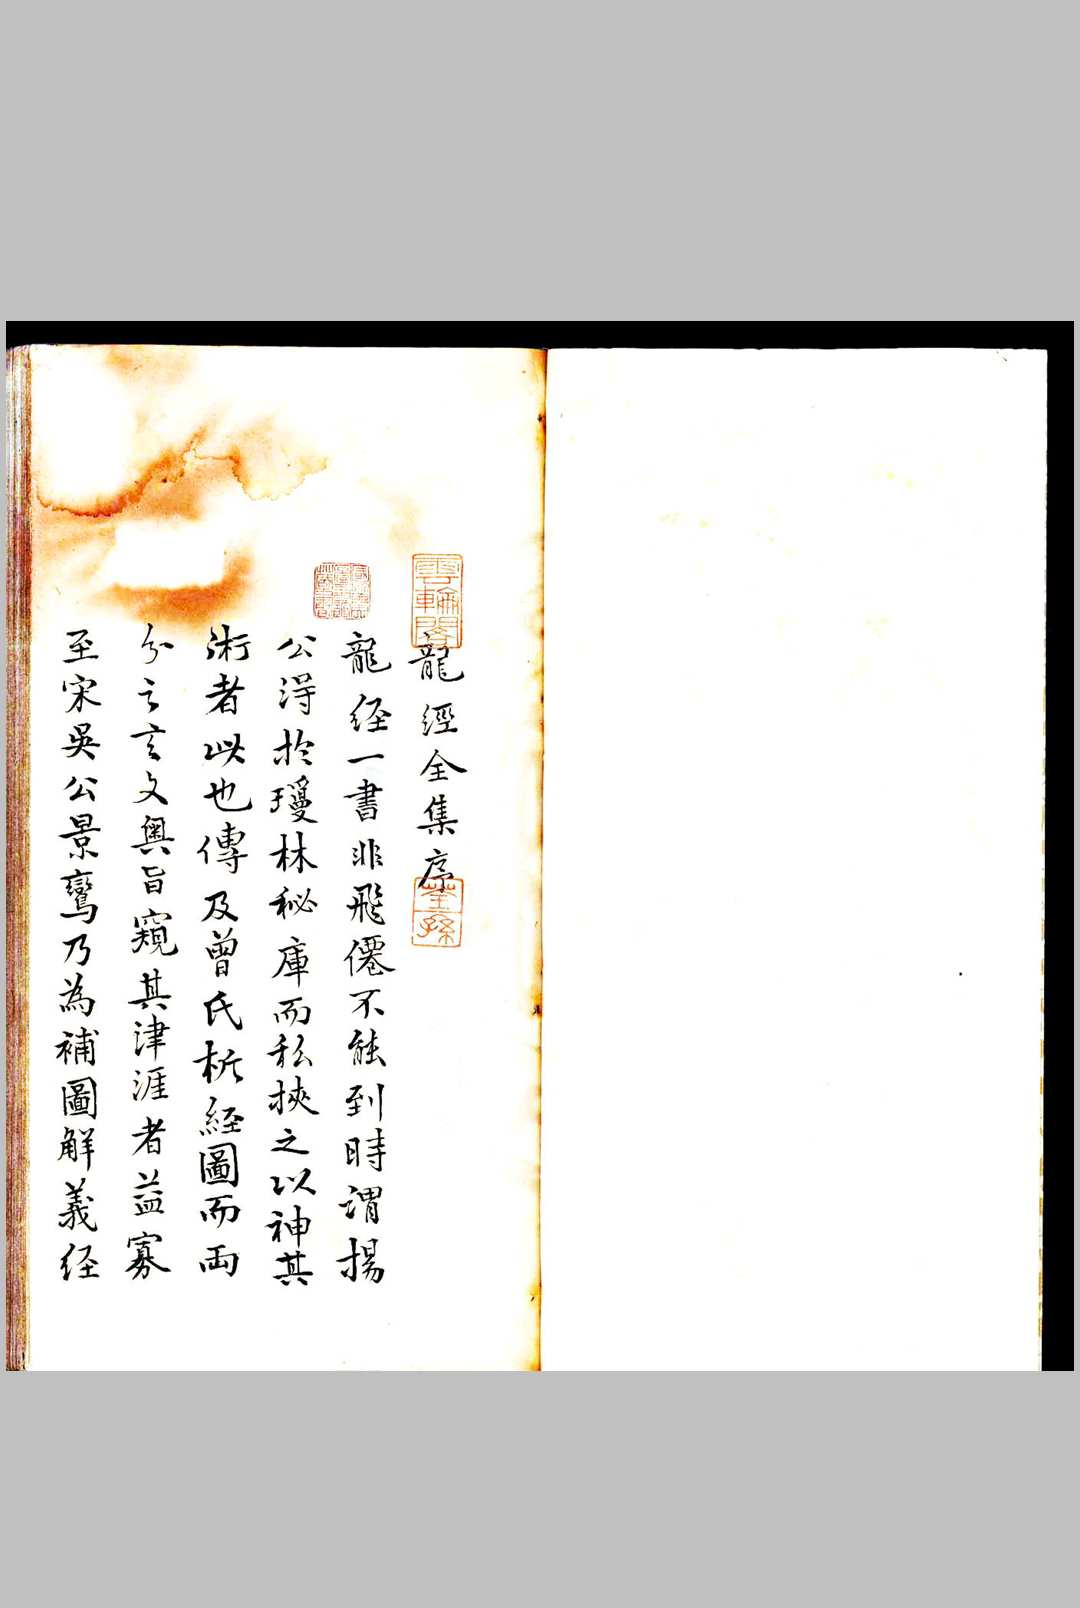 龍經全集序
龍経一書非飛僊不能到時謂楊
公得於瓊林秘庫而私挾之以神其
術者以也傳及曾氏析経圖而両
分之玄文奧旨窺其津涯者益寡
至宋吳公景鸞乃為補圖解義経
雲輪閣
荃孫